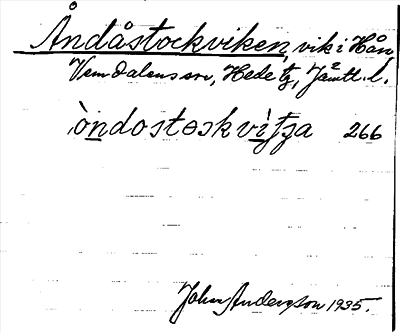 Åndåstockviken, vik i Hån,
Vemdalens sn, Hede tg, Jämtl. l.
òndostɵskvìʃʒa 266
John Anderson 1935.